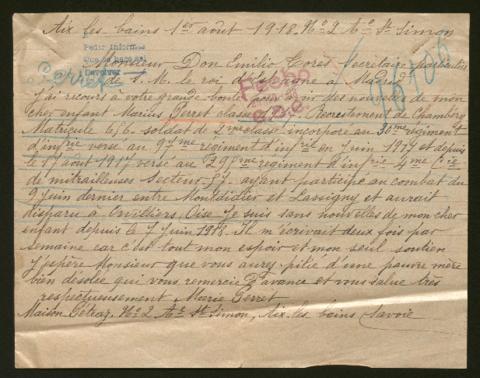 Aix les bains 1er août 1918. No 2 Ae St Simon
Pedir informes
Devolver
Monsieur Don Emilio Torès Secretaire particulier
de S. M. le roi d'Espagne à Madrid
Perret
Hecho
J'ai recours à votre grande bonté pour avoir des nouvelles de mon
cher enfant Marius Perret classe Recrutement de Chambéry
Matricule 636 soldat de 2me classe incorporé au 30me régiment
d'infrie versé au 97me régiment d'infrie en Juin 1917 et depuis
le 17 août 1917 versé au 29 régiment d'infrie 4me Cie
de mitrailleuses Secteur 57. ayant participé au combat du
9 Juin dernier entre Montdidier et Lassigny et aurait
disparu à Orvillers Oise Je suis sans nouvelles de mon cher
enfant depuis le 7 Juin 1918. Il m'écrivait deux fois par
semaine car c'est tout mon espoir et mon seul soutien
J'espère Monsieur que vous aurez pitié d'une pauvre mère
bien désolée qui vous remercie d'avance et vous salue très
respectueusement Marie Perret
Maison Pétraz, No 2 Ae St Simon, Aix les bains Savoie